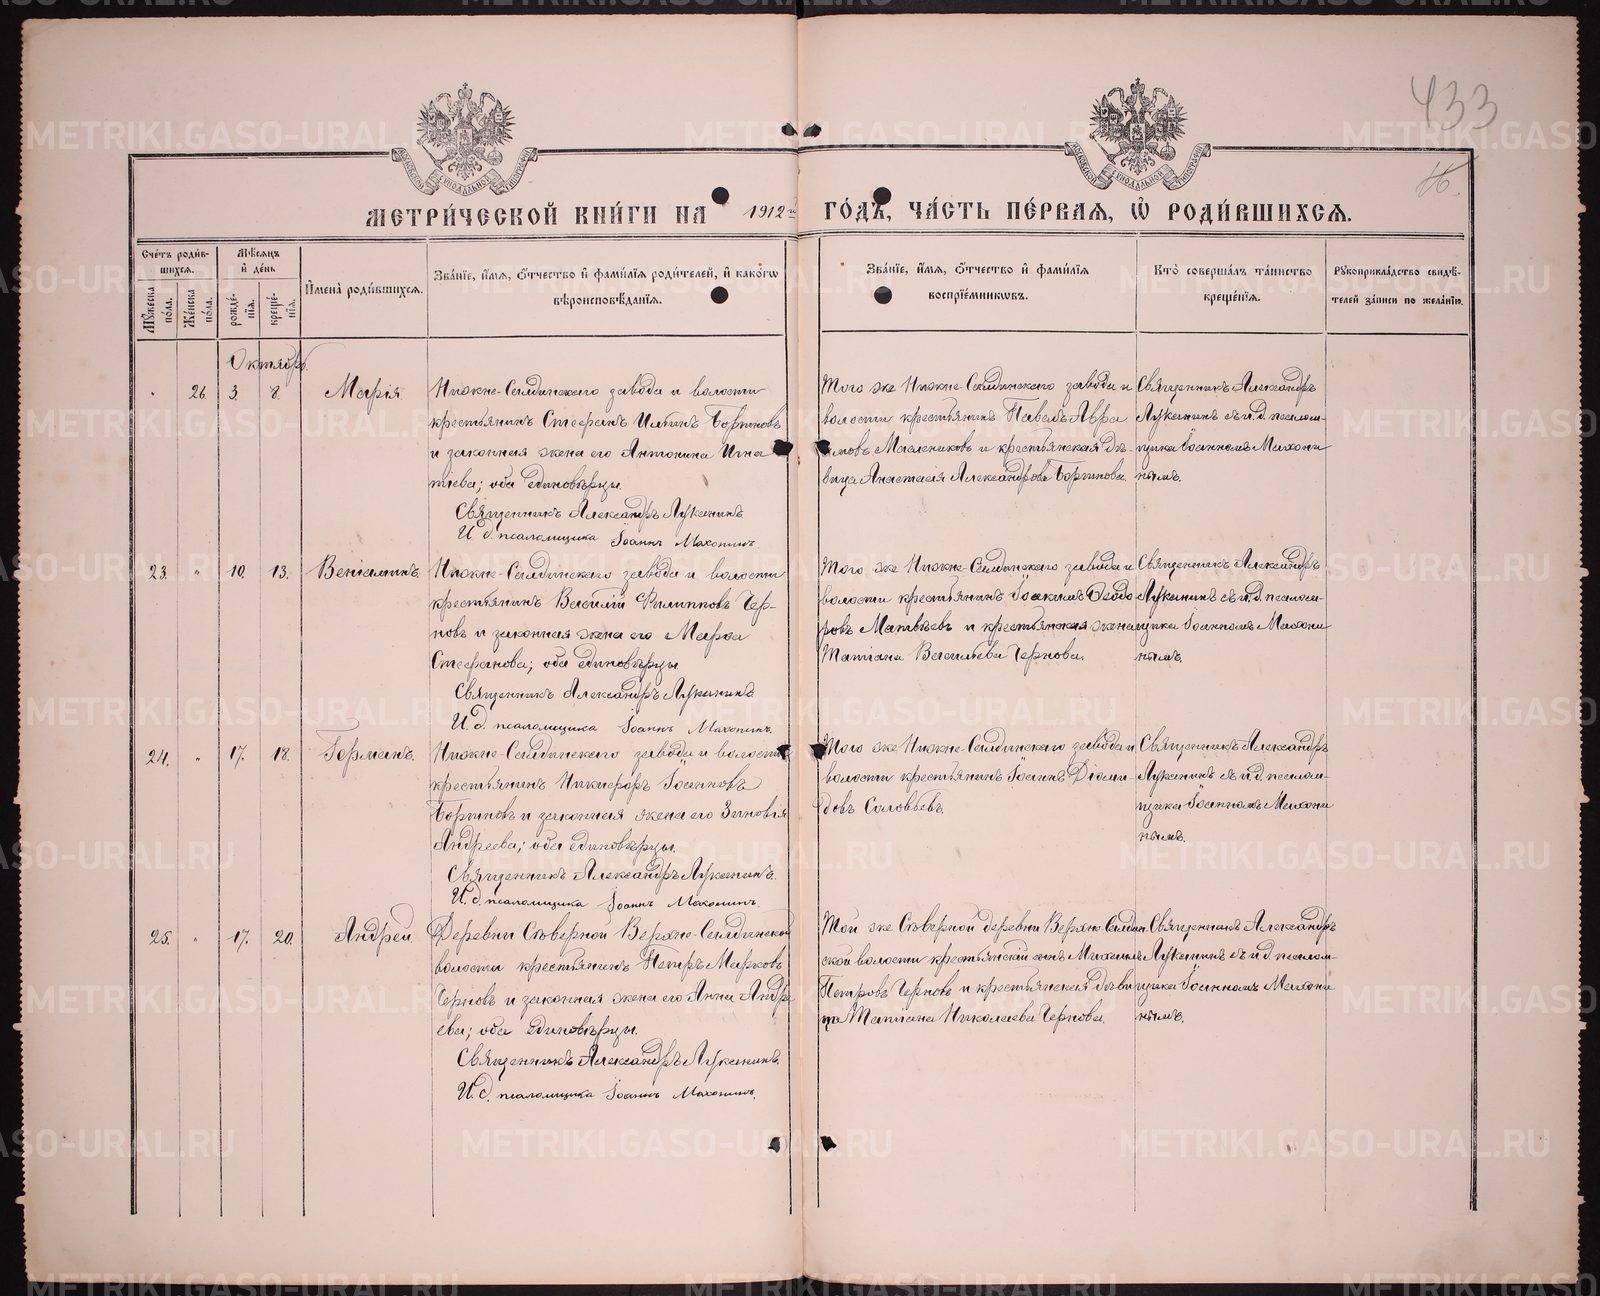 433
МЕТРИ́ЧЕСКОЙ КНИ́ГИ НА 1912й ГО́ДЪ, ЧА́СТЬ ПЕ́РВАЯ, Ѡ РОДИ́ВШИХСЯ.
Сче́тъ роди́вшихся.
Му́жеска по́ла.
Же́нска по́ла.
Мѣ́сяцъ и де́нь
рожде́нія.
креще́нія.
Имена̀ роди́вшихся.
Зва́ніе, и́мя, о́тчество и фами́лія роди́телей, и како́гѡ
вѣроисповѣ́данія.
Зва́ніе, и́мя, о́тчество и фами́лія
воспріе́мникѡвъ.
Кто̀ соверша́лъ та́инство
креще́нія.
Рꙋкоприкла́дство свидѣ́-
телей за́писи по жела́нію.
Октябрь
26. 3. 8. Марія
Нижне-Салдинскаго завода и волости
крестьянинъ Стефанъ Ильинъ Боршновъ
и законная жена его Антонина Игна
тіева; оба единовѣрцы
Священникъ Александръ Луканинъ
И. д. псаломщика Іоаннъ Махонинъ.
Того же Нижне-Салдинскаго завода и
волости крестьянинъ Павелъ Авра
амовъ Маслениковъ и крестьянская дѣ-
вица Анастасія Александрова Боршнова.
Священникъ Александръ
Луканинъ съ и. д. псалом-
щика Іоанномъ Махони
нымъ.
23. " 10. 13. Веніаминъ.
Нижне-Салдинскаго завода и волости
крестьянинъ Василій Филипповъ Чер-
новъ и законная жена его Марѳа
Стефанова; оба единовѣрцы
Священникъ Александръ Луканинъ
И. д. псаломщика Іоаннъ Махонинъ.
Того же Нижне-Салдинскаго завода и
волости крестьянинъ Іоакимъ Ѳеодо
ровъ Матвѣевъ и крестьянская жена
Татіана Васильева Чернова.
Священникъ Александръ
Луканинъ съ и. д. псалом-
щика Іоанномъ Махони
нымъ.
24. " 17. 18. Германъ.
Нижне-Салдинскаго завода и волости
крестьянинъ Никифоръ Іоанновъ
Боршновъ и законная жена его Зиновія
Андреева; оба единовѣрцы.
Священникъ Александръ Луканинъ.
И. д. псаломщика Іоаннъ Махонинъ.
Того же Нижне-Салдинскаго завода и
волости крестьянинъ Іоаннъ Діоми-
довъ Соловьевъ.
Священникъ Александръ
Луканинъ съ и. д. псалом-
щика Іоанномъ Махони
нымъ.
25. " 17. 20. Андрей
Деревни Сѣверной Верхне-Салдинской
волости крестьянинъ Петръ Марковъ
Черновъ и законная жена его Анна Андре
ева; оба единовѣрцы.
Священникъ Александръ Луканинъ.
И. д. псаломщика Іоаннъ Махонинъ.
Той же Сѣверной деревни Верхне-Салдин
ской волости крестьянскій сынъ Михаилъ
Петровъ Черновъ и крестьянская дѣви
ца Татіана Николаева Чернова.
Священникъ Александръ
Луканинъ съ и. д. псалом-
щика Іоанномъ Махони
нымъ.
METRIKI.GASO-URAL.RU